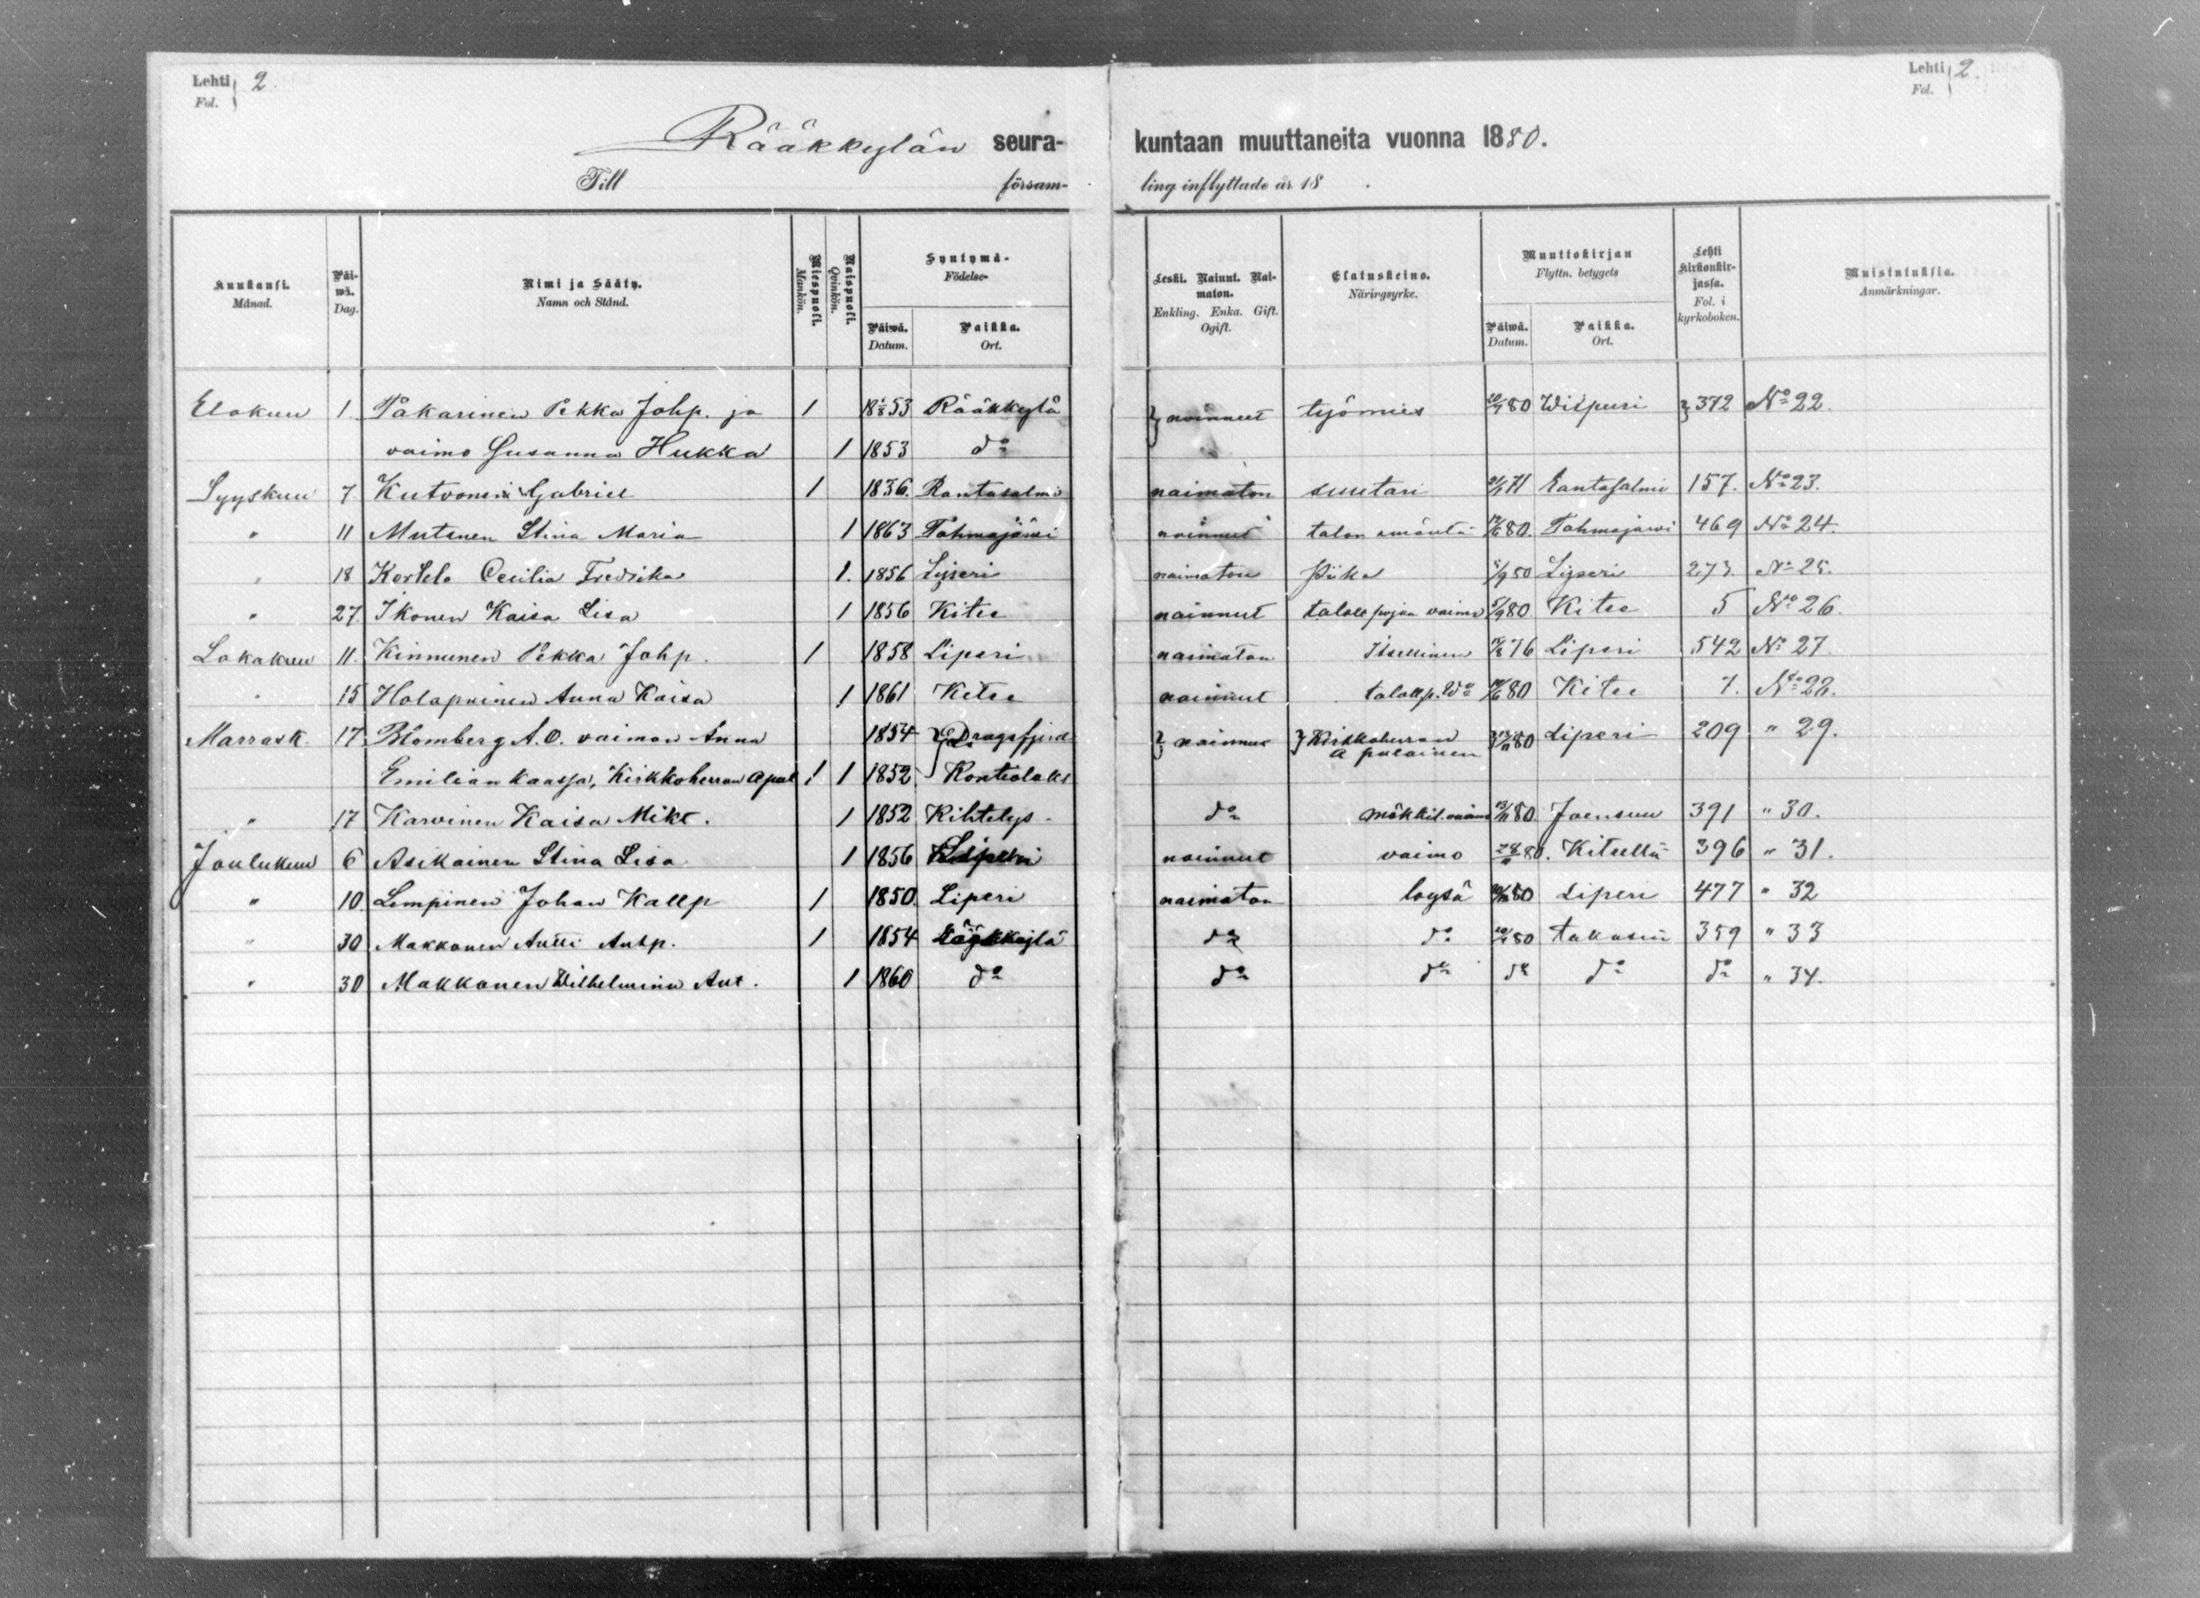 Lehti 2.
Fol.
Lehti 2.
Fol.
Rääkkylän seura- kuntaan muuttaneita vuonna 1880.
Till församling inflyttade år 18 .
Kuukausi. Månad.
Päiwä. Dag.
Nimi ja Sääty. Namn och Stånd.
Miespuoli. Mankön.
Naispuoli. Qvinkön.
Syntymä- Födelse-
Päiwä. Datum.
Paikka. Ort.
Leski. Nainut. Naimaton. Enkling. Enka. Gift. Ogift.
Elatuskeino. Närirgsyrke.
Muuttokirjan Flyttn. betygets
Päiwä. Datum.
Paikka. Ort.
Lehti kirkonkirjassa. Fol. i kyrkoboken.
Muistutuksia. Anmärkningar.
Elokuu 1. Pakarinen Pekka Johp. ja 1 53 Rääkkylä } nainneet työmies 80 Wiipuri } 372 No 22.
vaimo Susanna Hukka 1 1853 do
Syyskuu 7 Kutvonen Gabriel 1 1836. Rantasalmi naimaton suutari 71 Rantasalmi 157. No 23.
" 11 Mutanen Stina Maria 1 1863 Tohmajärvi nainnut talon emäntä 80. Tohmajärvi 469 No 24.
" 18 Cecilia Fredrika 1. 1856 Liperi naimaton Piika Liperi 273. No 25.
" 27. Ikonen Kaisa Lisa 1 1856 Kitee nainnut taloll pojan vaimo 80 Kitee 5 No 26.
Lokakuu 11. Kinnunen Pekka Johp. 1 1858 Liperi naimaton Itsellinen 76 Liperi 542 No 27.
" 15 Holapainen Anna Kaisa 1 1861 Kitee nainnut talollp. 80 Kitee 7. No 28.
Marrask. 17. Blomberg A. O. vaimon Anna 1854 } Dragsfjerd } nainnut } Kirkkoherran apulainen 80 Liperi 209 " 29.
Emilian kanssa, Kirkkoherran Apul 1 1 1852 Kontiolaks
" 17 Karvinen Kaisa Mikt. 1 1852 Kihtelys. do mökkil. vaimo 80 Joensuu 391 " 30.
Joulukuu 6 Asikainen Stina Lisa 1 1856 Liperi nainnut vaimo 80. Kiteellä 396 " 31.
" 10. Lempinen Johan Kallp 1 1850. Liperi naimaton loysä 80 Liperi 477 " 32
" 30 Makkonen Antti Antp. 1 1854 Rääkkylä do do 80 takasin 359 " 33
" 30 Makkonen Wilhelmina Ant. 1 1860 do do do do do do " 34.